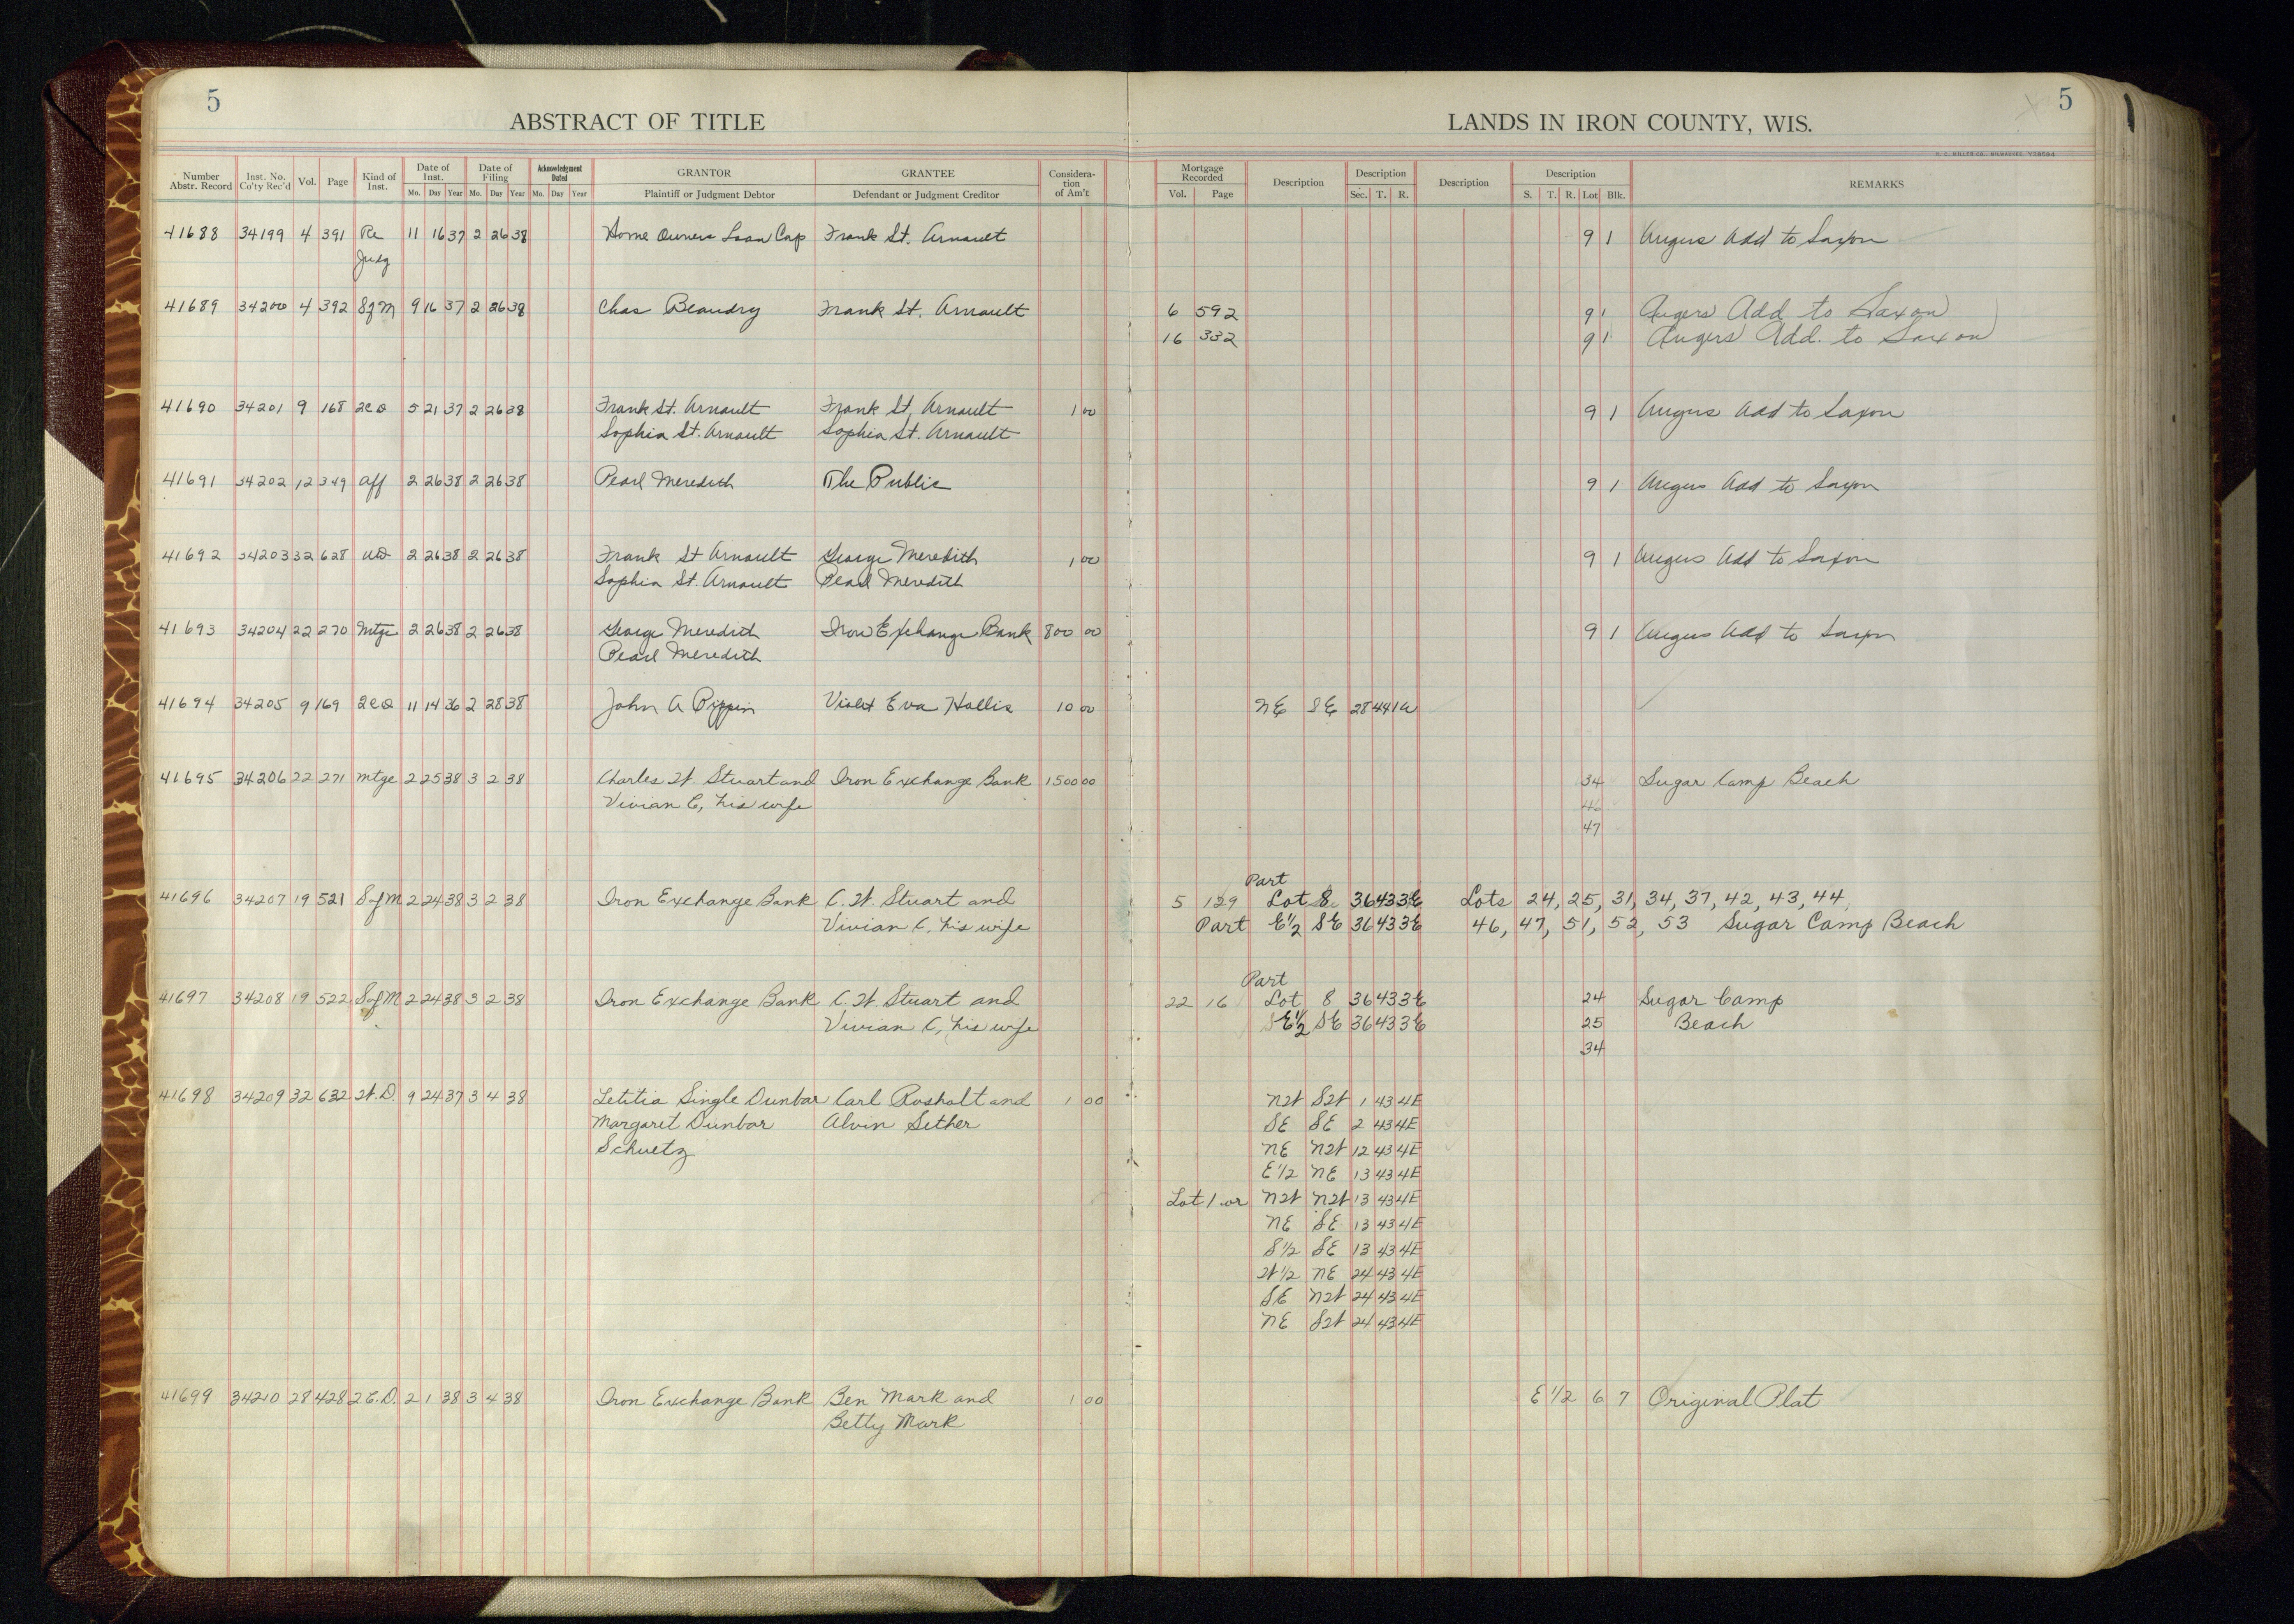 5
5
ABSTRACT OF TITLE
LANDS IN IRON COUNTY, WIS.
H. C. MILLER CO., MILWAUKEE
Number Abstr. Record Inst. No. Co'ty Rec'd Vol. Page Kind of Inst. Date of Inst. Mo. Day Year Date of Filing Mo. Day Year Acknowledgment Dated Mo. Day Year GRANTOR Plaintiff or Judgment Debtor GRANTEE Defendant or Judgment Creditor Considera-tion of Am't Mortgage Recorded Vol. Page Description Description Sec. T. R. Description Description S. T. R. Lot Blk. REMARKS
41688 34199 4 391 Re 11 16 37 2 26 38 Home Owners Loan Corp Frank St. Arnault 9 1 Angus Add to Saxon
Judg
41689 34200 4 392 S of M 9 16 37 2 26 38 Chas Beaudry Frank St. Arnault 6 592 9 1 Angers Add to Saxon
16 332 9 1 Angers Add. to Saxon
41690 34201 9 168 2CD 5 21 37 2 26 38 Frank St. Arnault Frank St. Arnault 1 00 9 1 Angus Add to Saxon
Sophia St. Arnault Sophia St. Arnault
41691 34202 12 349 Aff 2 26 38 2 26 38 Pearl Meredith The Public 9 1 Angus Add to Saxon
41692 34203 32 628 WD 2 26 38 2 26 38 Frank St Arnault George Meredith 1 00 9 1 Angus Add to Saxon
Sophia St. Arnault Pearl Meredith
41693 34204 22 270 Mtge 2 26 38 2 26 38 George Meredith Iron Exchange Bank 800 00 9 1 Angus Add to Saxon
Pearl Meredith
41694 34205 9 169 2CD 11 14 36 2 28 38 John A Pippin Violet Eva Hollis 10 00 NE SE 28 44 1W
41695 34206 22 271 Mtge 2 25 38 3 2 38 Charles W. Stuart and Iron Exchange Bank 1500 00 34 Sugar Camp Beach
Vivian C, his wife 46
47
Part
41696 34207 19 521 S of M 2 24 38 3 2 38 Iron Exchange Bank C. W. Stuart and 5 129 Lot 8 36 43 3E Lots 24, 25, 31, 34, 37, 42, 43, 44,
Vivian C, his wife Part E½ SE 36 43 3E 46, 47, 51, 52, 53 Sugar Camp Beach
Part
41697 34208 19 522 S of M 2 24 38 3 2 38 Iron Exchange Bank C. W. Stuart and 22 16 Lot 8 36 43 3E 24 Sugar Camp
Vivian C, his wife E½ SE 36 43 3E 25 Beach
34
41698 34209 32 632 W.D. 9 24 37 3 4 38 Letitia Single Dunbar Carl Rosholt and 1 00 NW SW 1 43 4E
Margaret Dunbar Alvin Sether SE SE 2 43 4E
Schuetz NE NW 12 43 4E
E½ NE 13 43 4E
Lot 1 or NW NW 13 43 4E
NE SE 13 43 4E
S½ SE 13 43 4E
W½ NE 24 43 4E
SE NW 24 43 4E
NE SW 24 43 4E
41699 34210 28 428 2C.D. 2 1 38 3 4 38 Iron Exchange Bank Ben Mark and 1 00 E ½ 6 7 Original Plat
Betty Mark